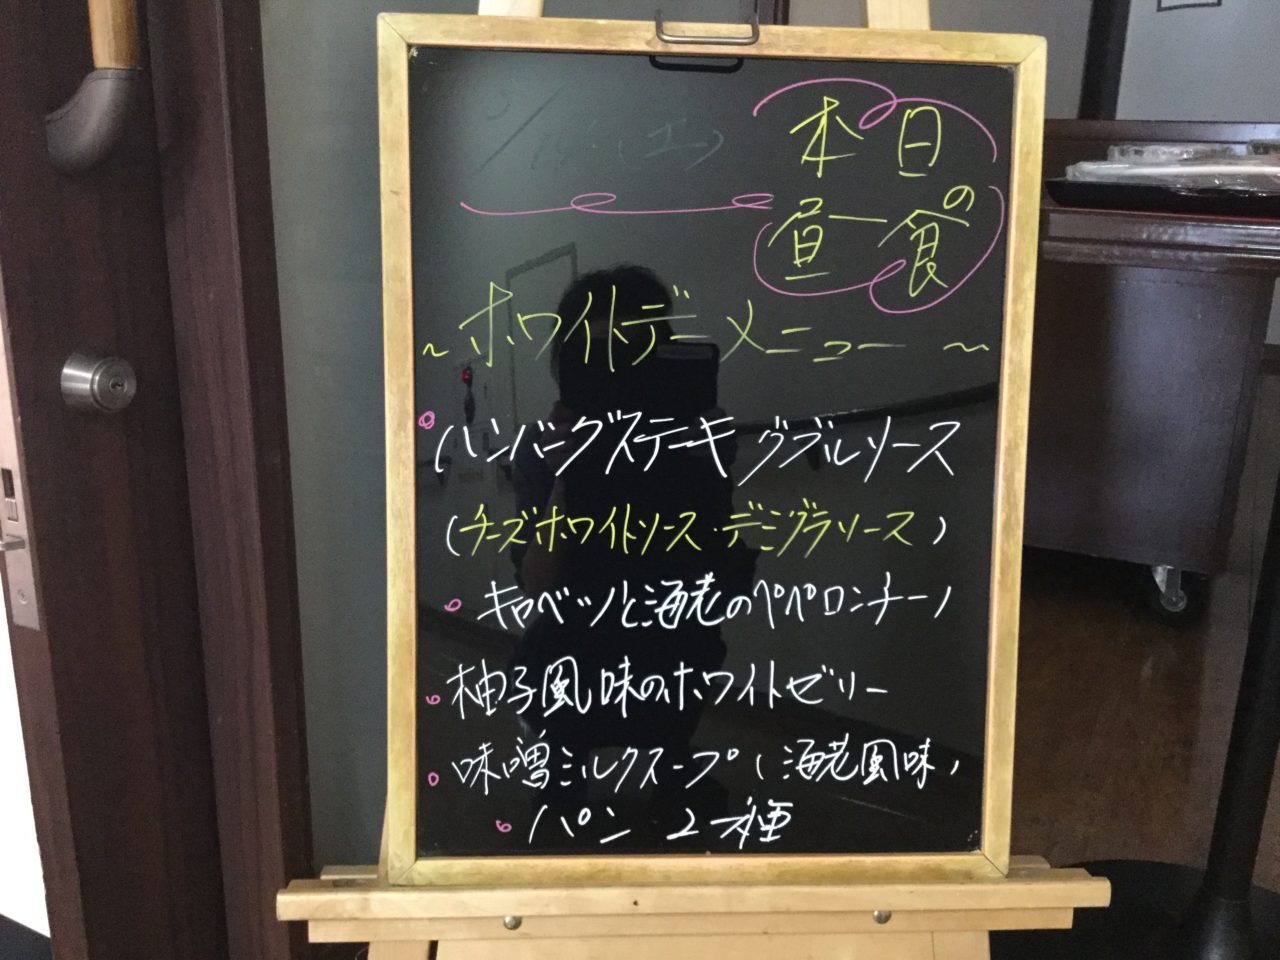 本日の
昼食
~ホワイトデーメニュー~
ハンバーグステーキ ダブルソース
(チーズホワイトソース・デミグラソース)
キャベツと海老のペペロンチーノ
柚子風味のホワイトゼリー
味噌ミルクスープ(海老風味)
パン 2種